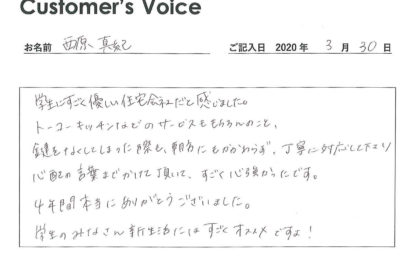 Customer's Voice
お名前 西原 真紀 ご記入日 2020 年 3 月 30 日
学生にすごく優しい住宅会社だと感じました。
トーコーキッチンなどのサービスももちろんのこと、
鍵をなくしてしまった際も、朝方にもかかわらず、丁寧に対応して下さり
心配の言葉までかけて頂いて、すごく心強かったです。
4年間本当にありがとうございました。
学生のみなさん新生活にはすごくオススメですよ!